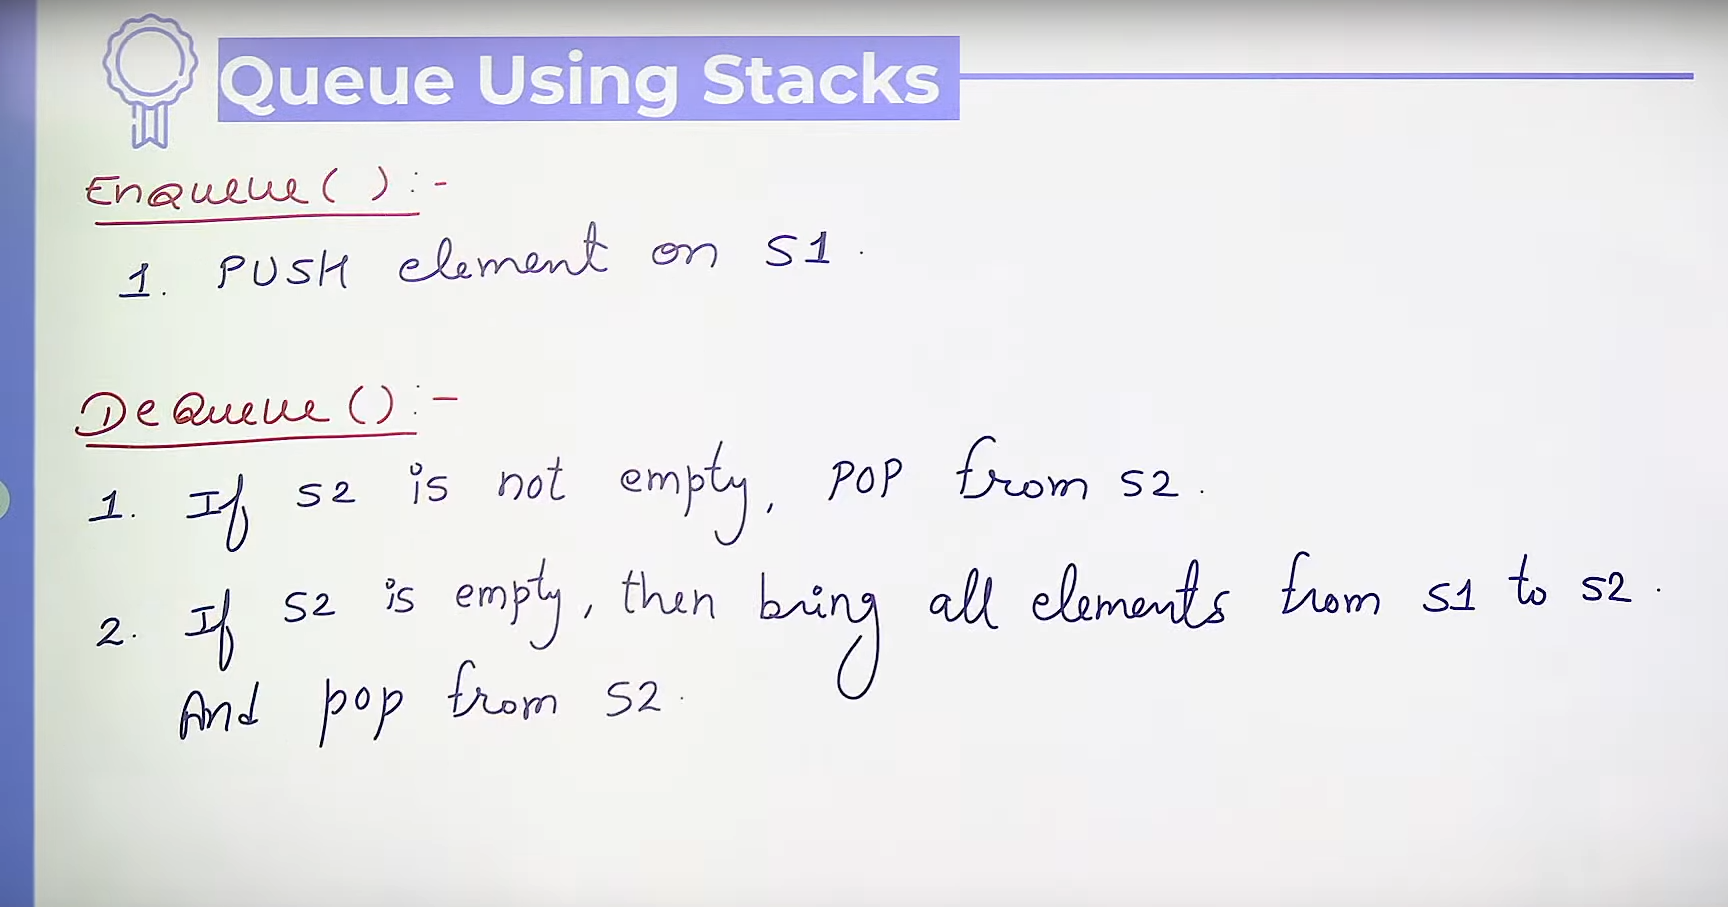 Queue Using Stacks
EnQueue( ):-
1. PUSH element on S1.
DeQueue():-
1. If S2 is not empty, POP from S2.
2. If S2 is empty, then bring all elements from S1 to S2.
And pop from S2.